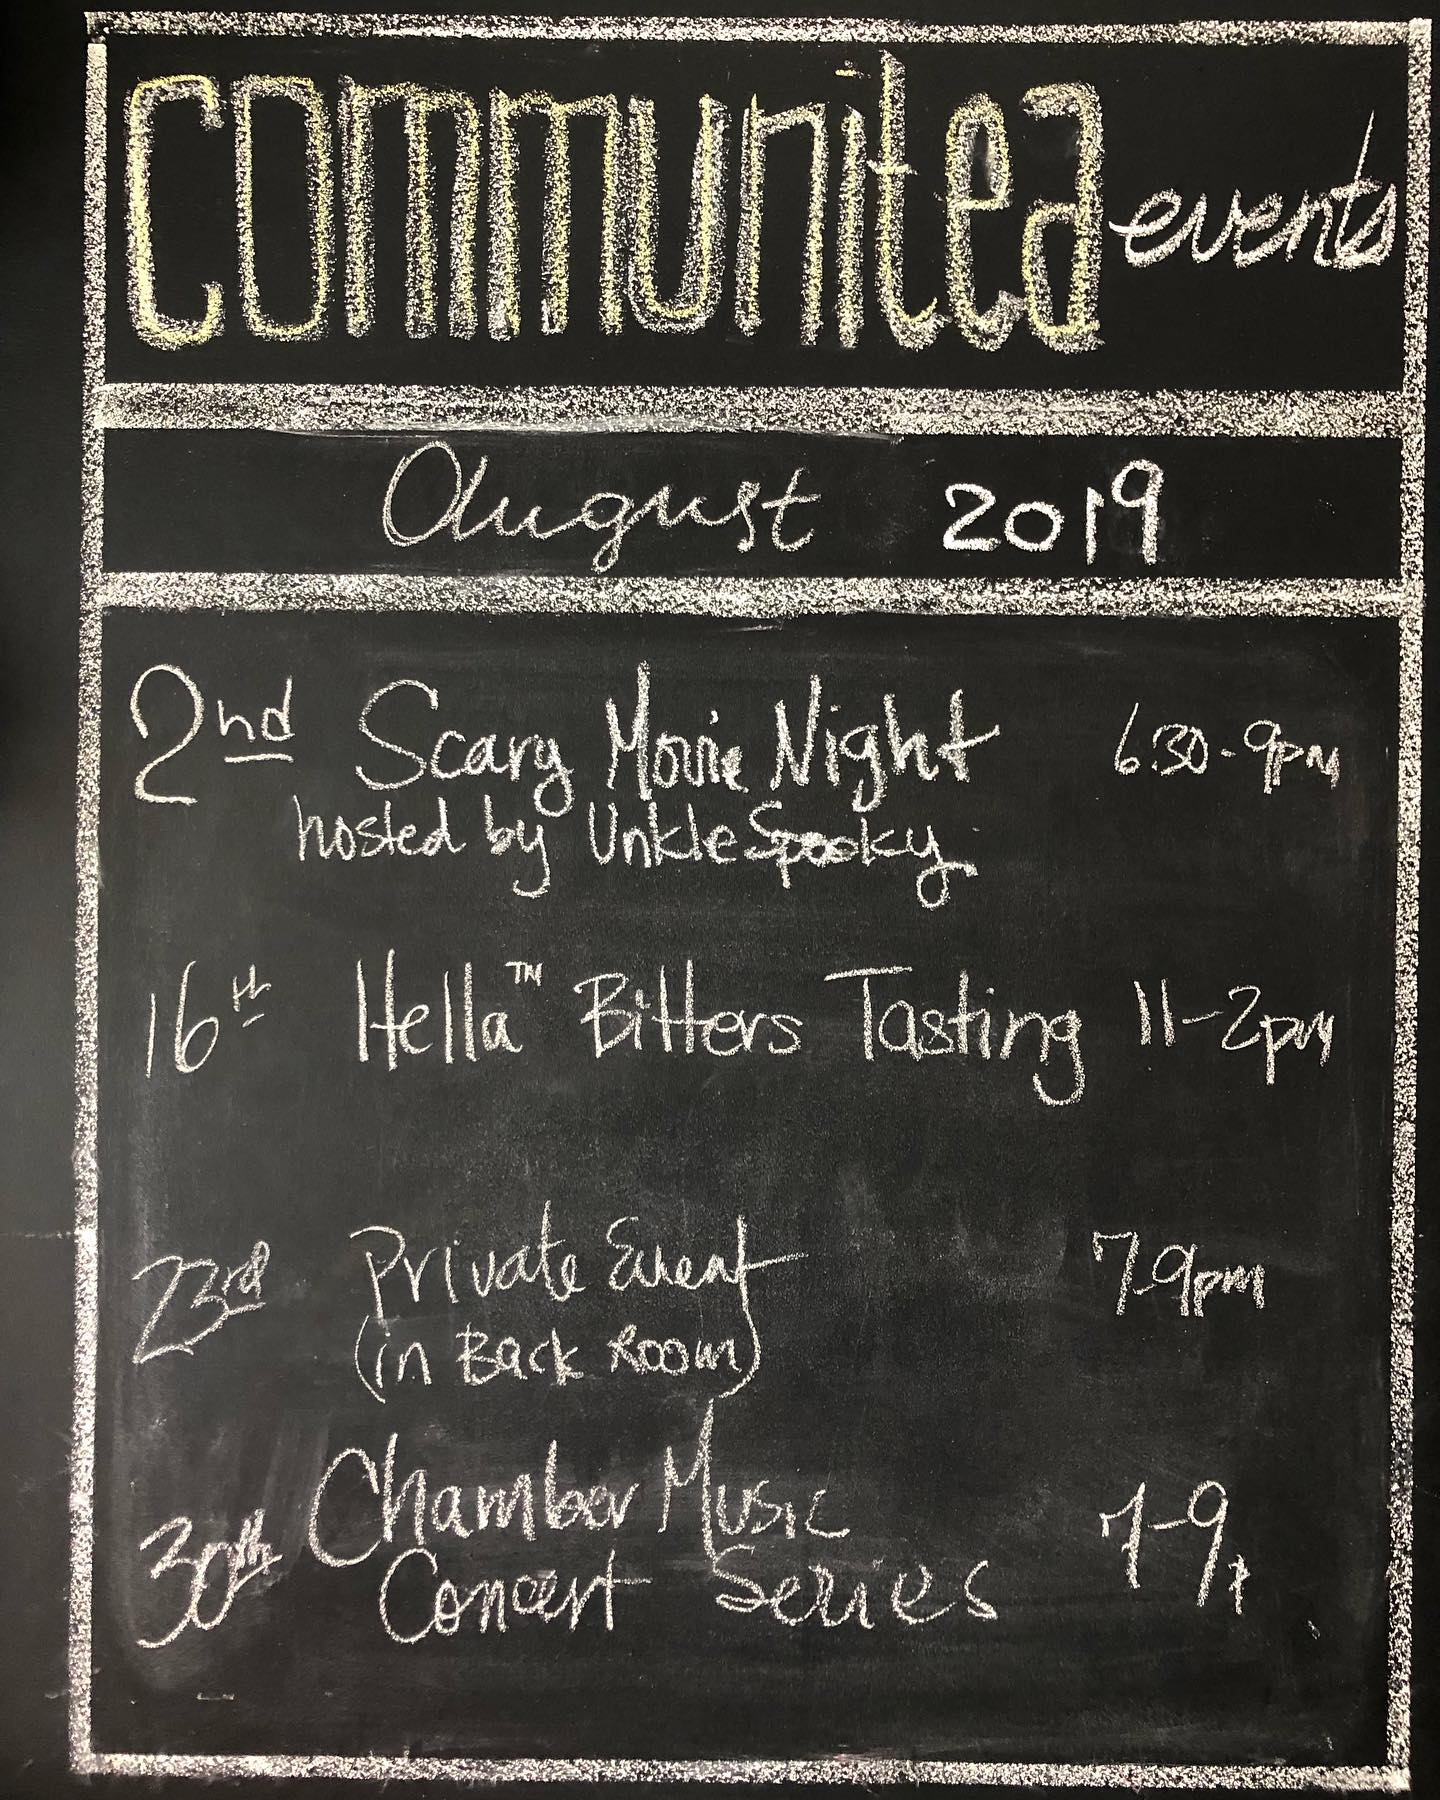 communitea events
August 2019
2nd Scary Movie Night 6:30-9pm
hosted by Unkle Spooky
16th Hella™ Bitters Tasting 11-2pm
23rd Private Event 7-9pm
(in Back Room)
30th Chamber Music 7-9p
Concert Series